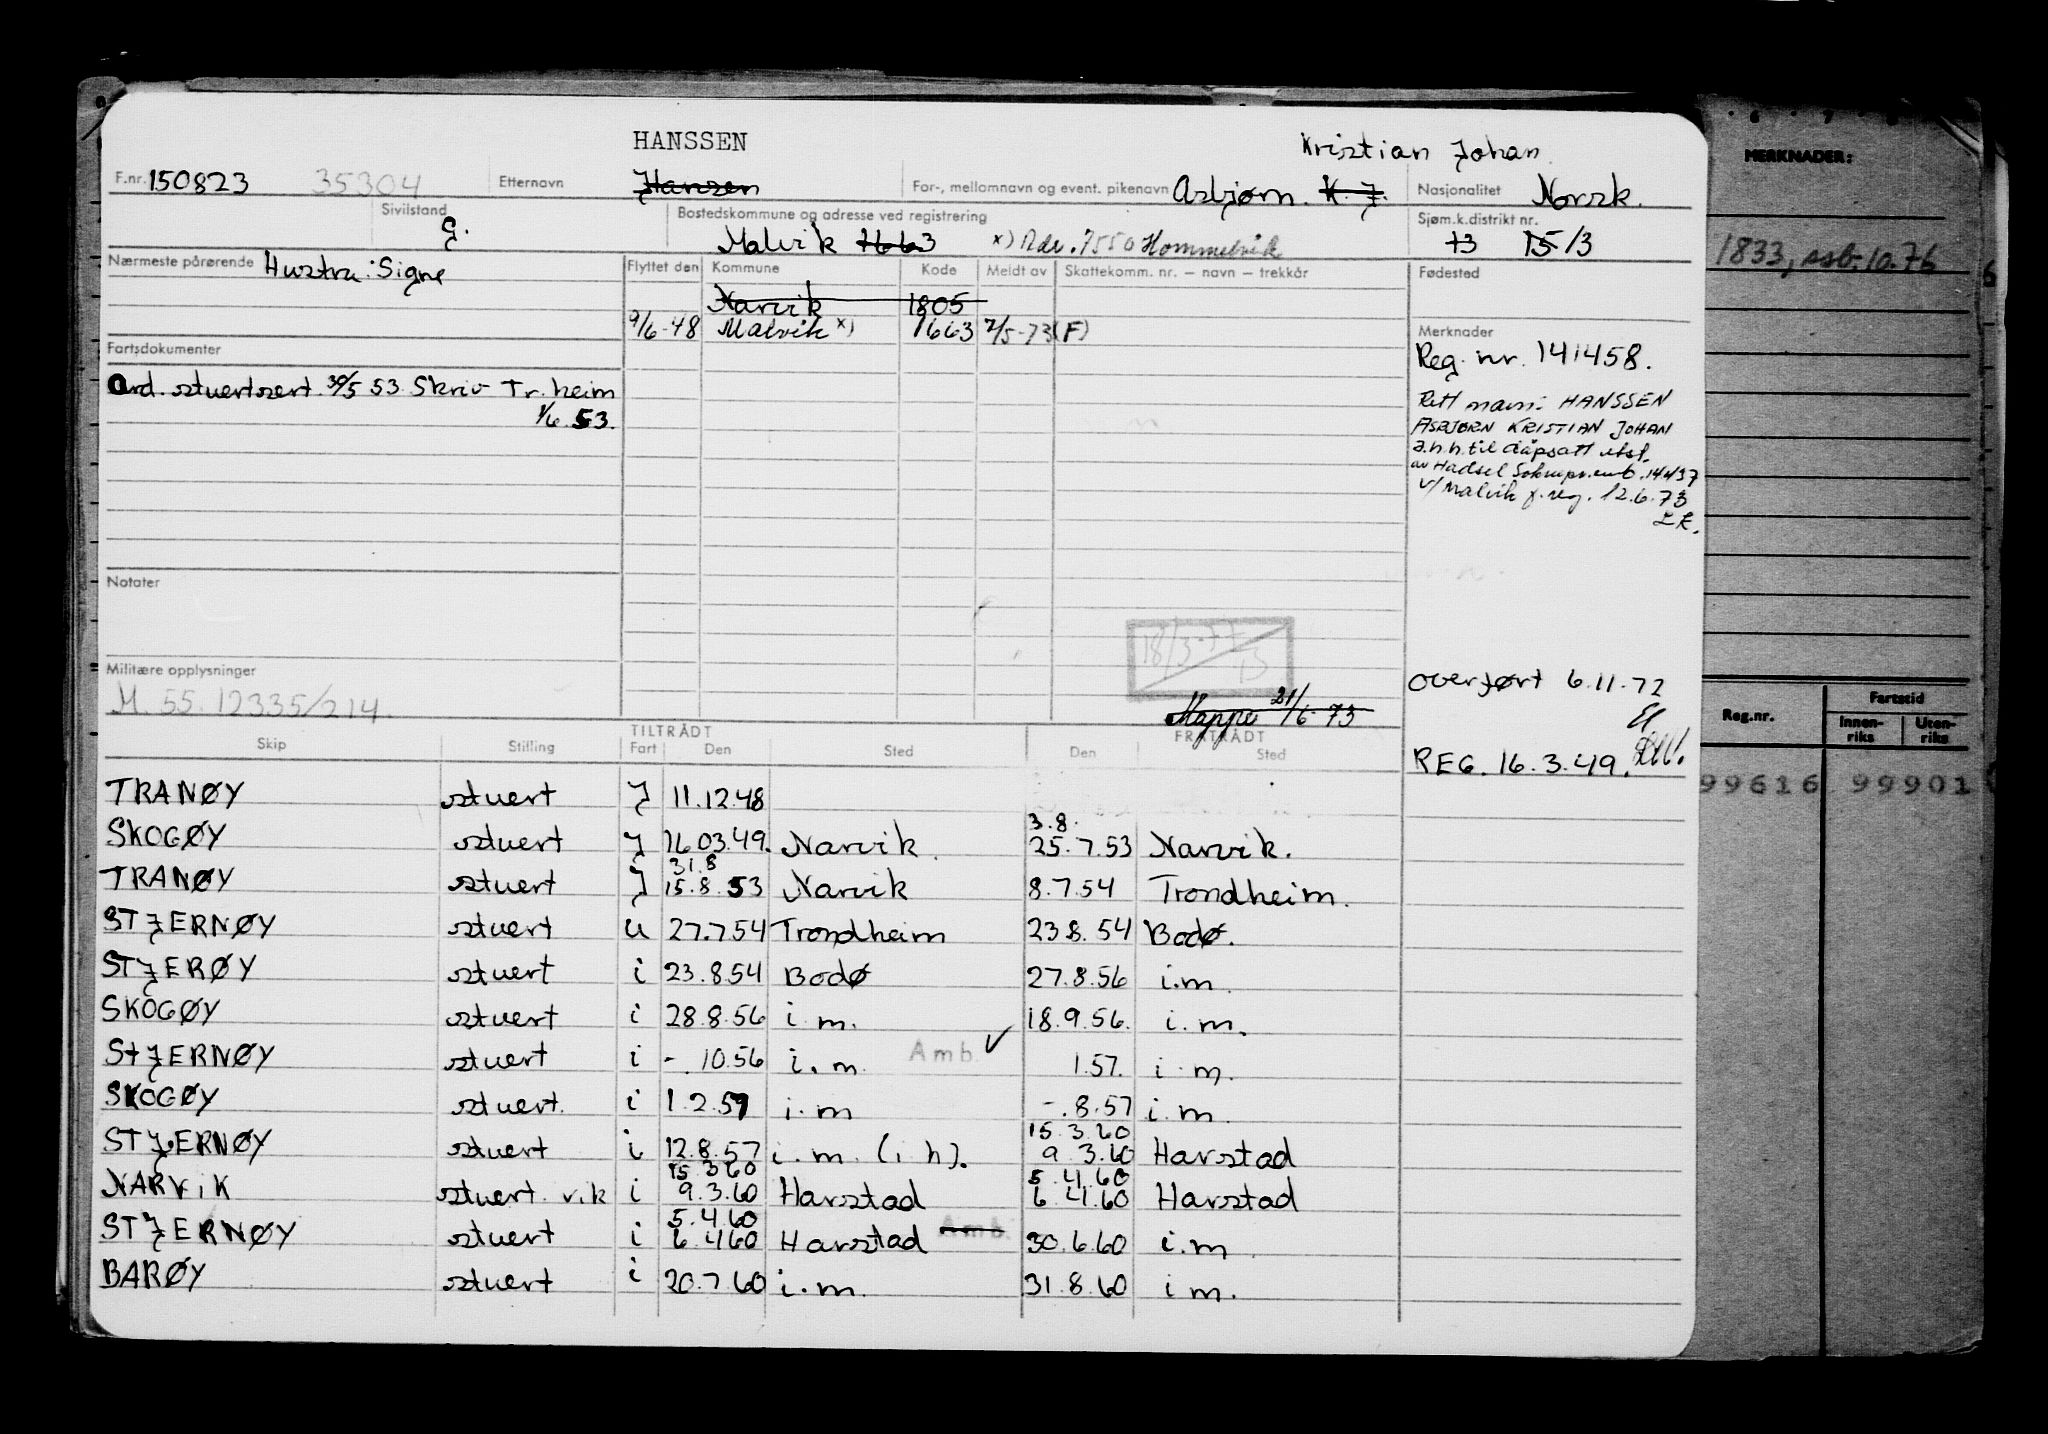 HANSSEN Kristian Johan.
F.nr. 150823 35304 Etternavn Hansen For-, mellomnavn og event. pikenavn Asbjørn. K. J. Nasjonalitet Norsk.
Sivilstand G. Bostedskommune og adresse ved registrering Malvik 1663 x) Adr. 7550 Hommelvik Sjøm.k.distrikt nr. 13 15/3
Nærmeste pårørende Hustru: Signe Flyttet den Kommune Kode Meldt av Skattekomm. nr. – navn – trekkår Fødested
Narvik 1805
9/6-48 Malvik x) 1663 2/5-73 (F) Merknader
Fartsdokumenter Reg. nr. 141458.
Ord. stuertsert. 30/5 53. Skriv Tr.heim
1/6. 53.
Rett navn: HANSSEN
ASBJØRN KRISTIAN JOHAN
a.h.h. til dåpsatt utst.
av Hadsel Soknepr.emb. 14437
v/Malvik f.reg. 12.6.73
Notater
18/3-77
Militære opplysninger
M. 55. 12335/214.
overført 6.11.72
Mappe 21/6-73
REG. 16.3.49.
TILTRÅDT FRATRÅDT
Skip Stilling Fart Den Sted Den Sted
TRANØY stuert J 11.12.48
3.8.
SKOGØY stuert J 16.03.49. Narvik. 25.7.53 Narvik.
31.8
TRANØY stuert J 15.8.53 Narvik 8.7.54 Trondheim.
STJERNØY stuert U 27.7.54 Trondheim 23.8.54 Bodø.
STJERØY stuert i 23.8.54 Bodø 27.8.56 i.m
SKOGØY stuert i 28.8.56 i.m. 18.9.56. i.m.
STJERNØY stuert i -.10.56 i.m. Amb. ✓ 1.57. i.m.
SKOGØY stuert. i 1.2.57 i.m -.8.57 i.m.
15.3.60
STJERNØY stuert i 12.8.57 i.m. (i h). 9.3.60 Harstad
15.3.60 5.4.60
NARVIK stuert vik i 9.3.60 Harstad 6.4.60 Harstad
5.4.60
STJERNØY stuert i 6.4.60 Harstad Amb. 30.6.60 i.m
BARØY stuert i 20.7.60 i.m. 31.8.60 i m.
6 7
MERKNADER:
1833, ssb. 10.76
Reg.nr. Fartstid
Innen-riks Uten-riks
99616 99901